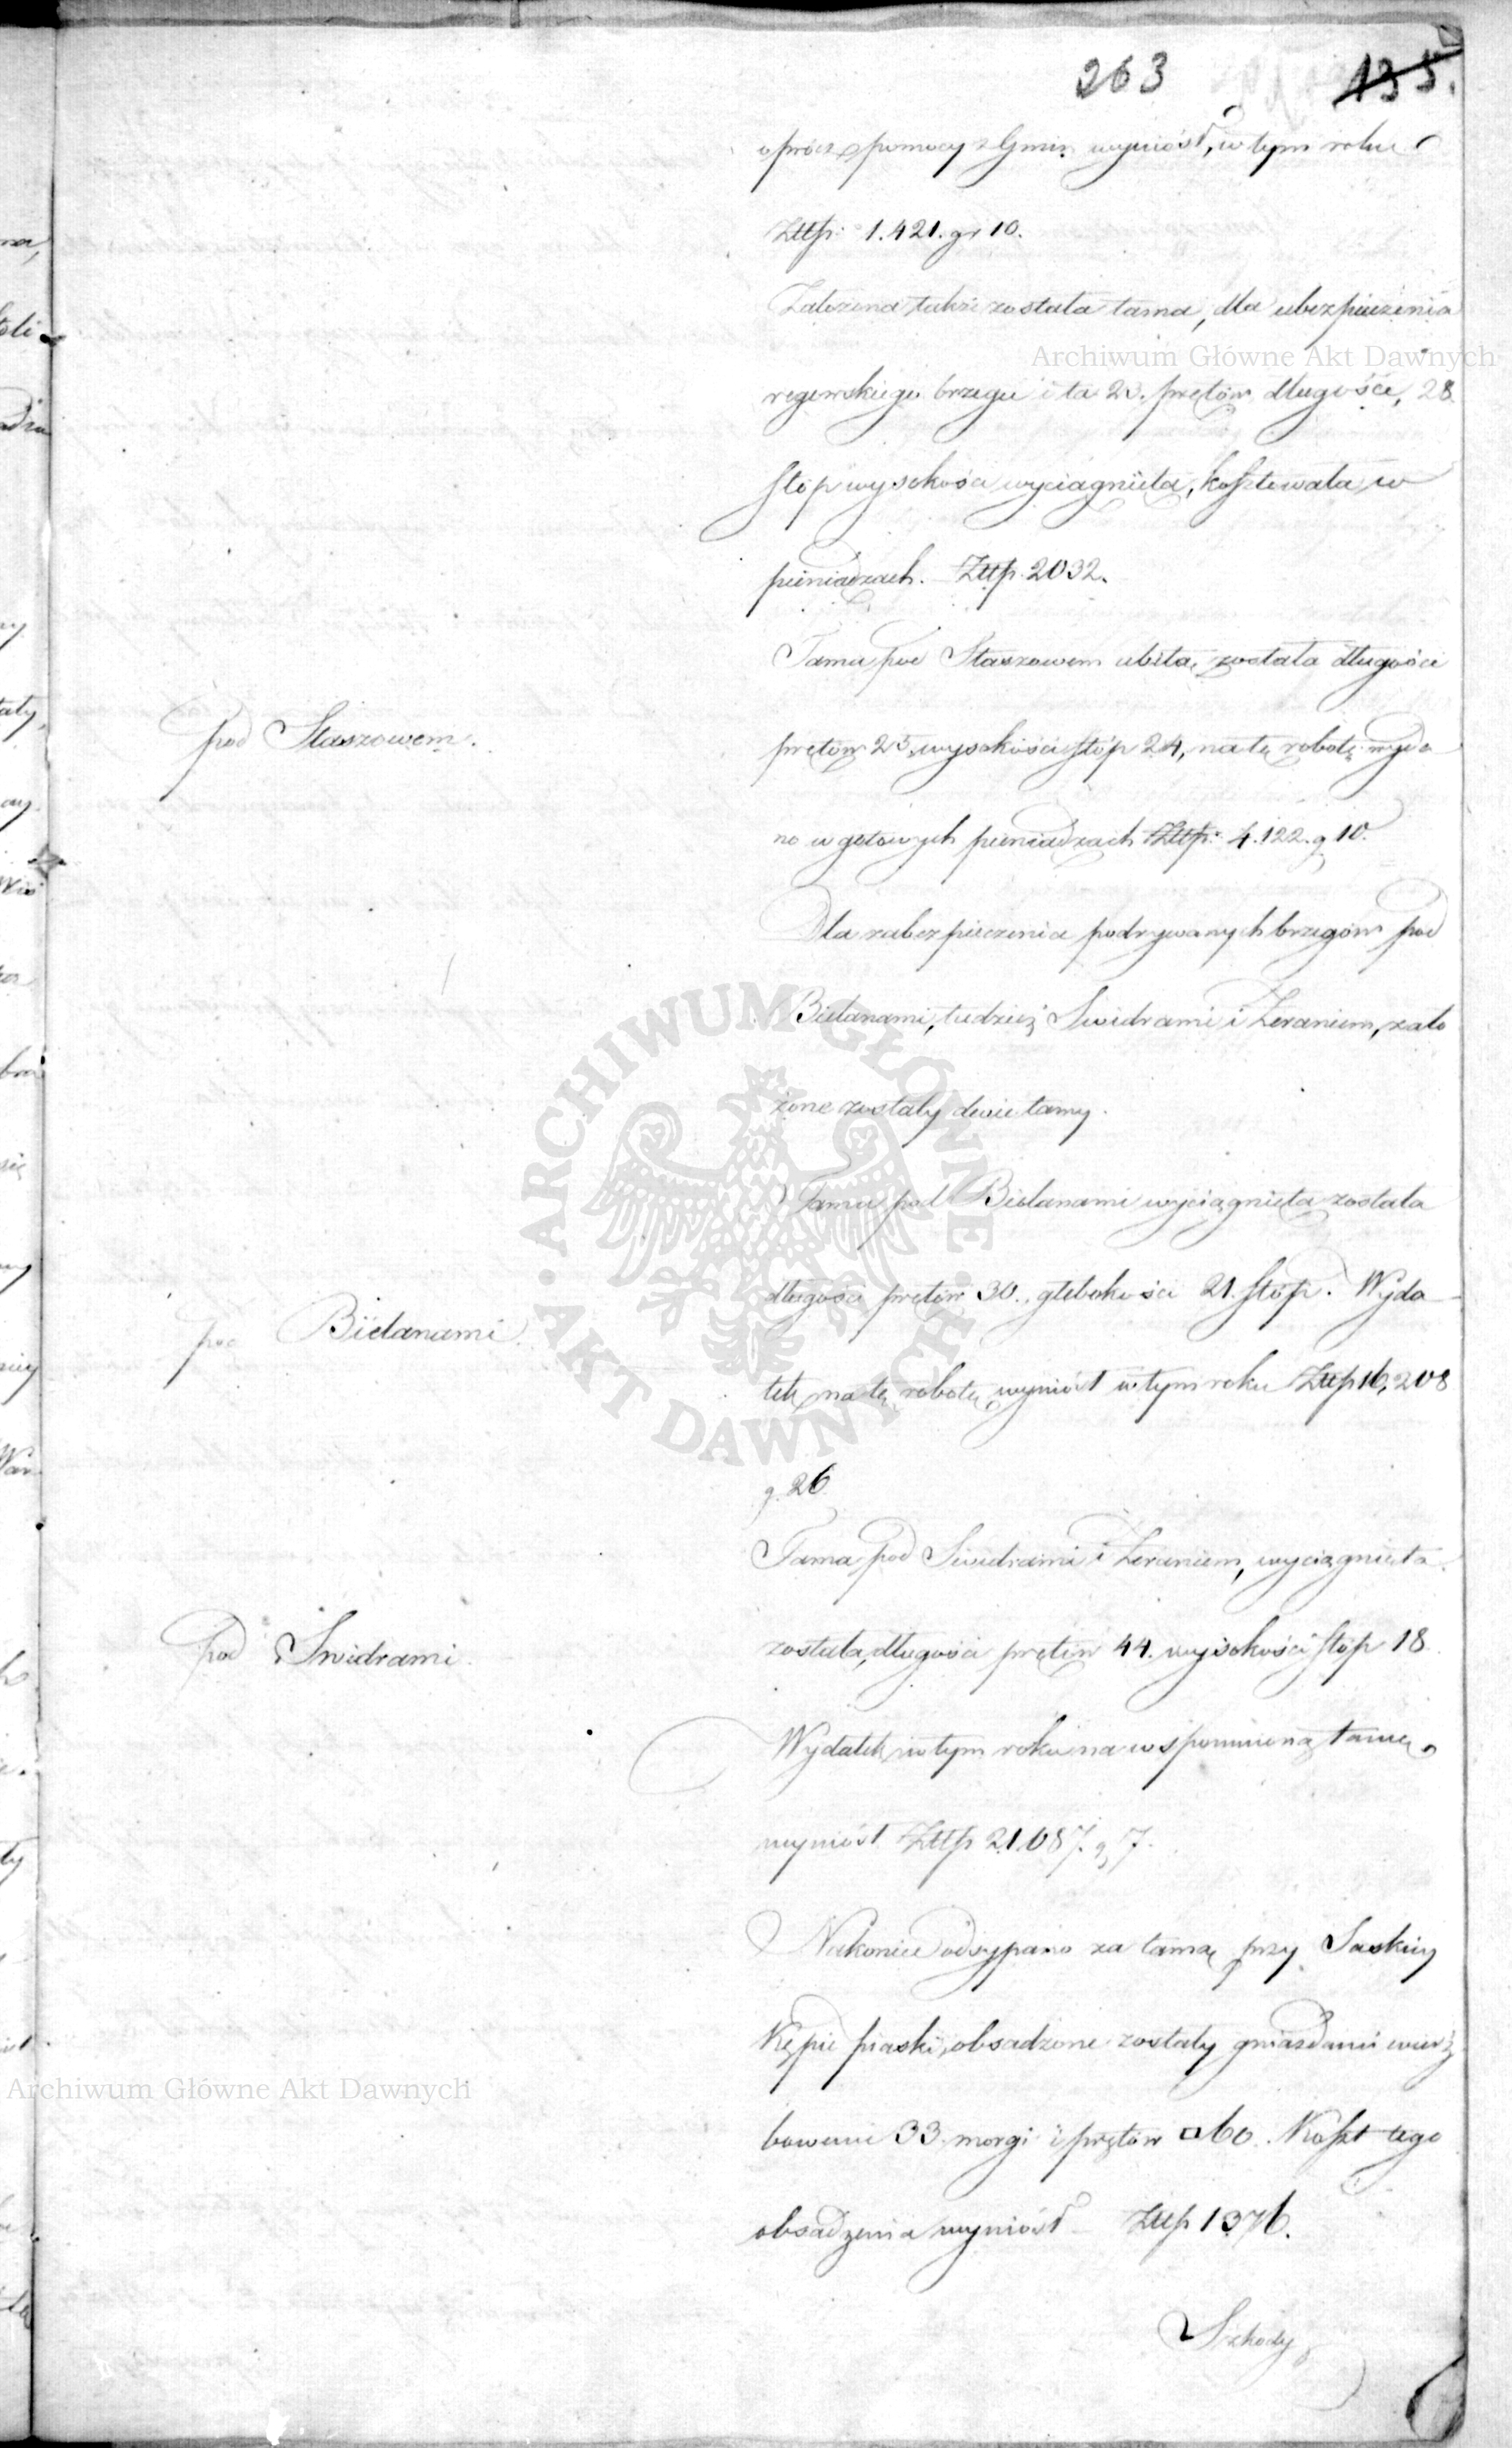 263 135.
oprócz pomocy z Gmin wyniósł, w tym roku
Złtp: 1.421. gr 10.
Założona także została tama, dla ubezpieczenia
brzegu i ta 23. prętów długości, 28.
stóp wysokości wyciągnięta, kosztowała w
pieniądzach. Złtp. 2032.
Tama pod Staszowem ubitą została długości
pod Staszowem.
prętów 23, wysokości stóp 24, na tę robotę wyda
no w gotowych pieniądzach Złtp: 4.122. g 10.
Dla zabezpieczenia podrywanych brzegów pod
Bielanami, tudzież Swidrami i Zeraniem, zało
żone zostały dwie tamy.
Tama pod Bielanami wyciągnięta została
długości prętów 30., głębokości 21. stóp. Wyda
pod Bielanami.
tek na tę robotę wyniósł w tym roku Złtp 16,208
g. 26
Tama pod Swidrami i Zeraniem, wyciągnięta
pod Swidrami.
została, długości prętów 44. wysokości stóp 18.
Wydatek w tym roku na wspomnioną tamę
wyniósł Złtp 21.087. g 7.
Nakoniec odsypano za tamą przy Saskiey
Kępie piaski, obsadzone zostały gniazdami wierz
bowemi 33. morgi i prętów □ 60. Koszt tego
obsadzenia wyniósł Złtp 1376.
Szkody
Archiwum Główne Akt Dawnych
ARCHIWUM GŁÓWNE AKT DAWNYCH
Archiwum Główne Akt Dawnych